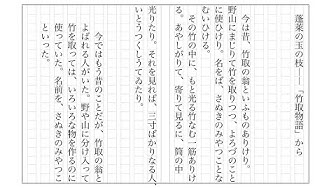 蓬萊の玉の枝――「竹取物語」から
今は昔、竹取の翁といふものありけり。
野山にまじりて竹を取りつつ、よろづのこと
に使ひけり。名をば、さぬきのみやつことな
むいひける。
その竹の中に、もと光る竹なむ一筋ありけ
る。あやしがりて、寄りて見るに、筒の中
光りたり。それを見れば、三寸ばかりなる人、
いとうつくしうてゐたり。
今ではもう昔のことだが、竹取の翁と
よばれる人がいた。野や山に分け入って
竹を取っては、いろいろな物を作るのに
使っていた。名前を、さぬきのみやつこ
といった。